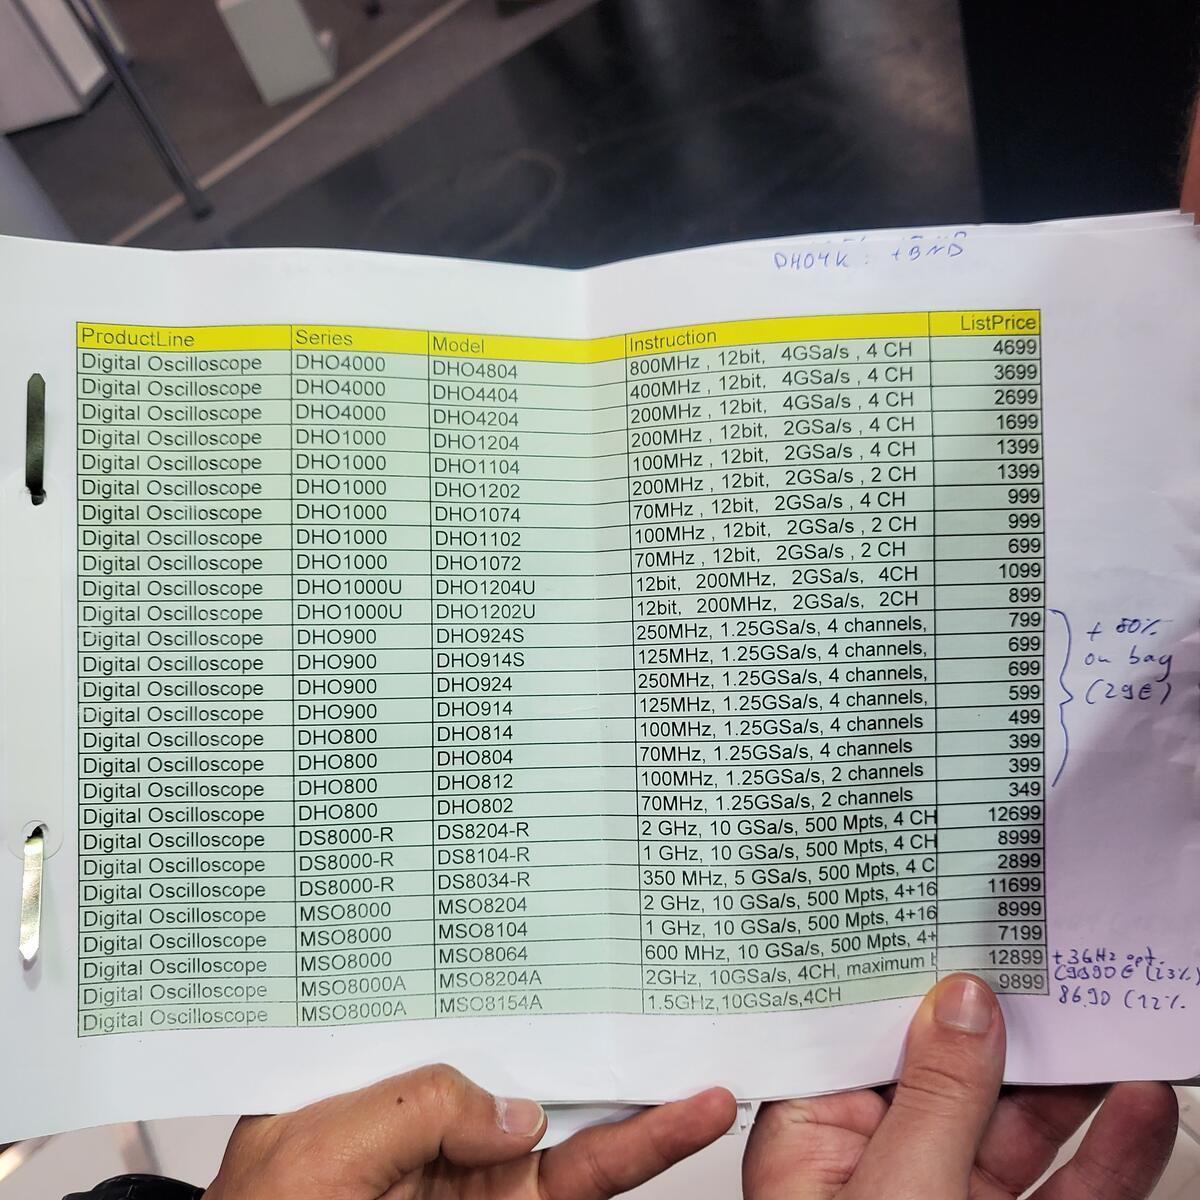 DHO4K: +BND
ProductLine Series Model Instruction ListPrice
Digital Oscilloscope DHO4000 DHO4804 800MHz , 12bit, 4GSa/s , 4 CH 4699
Digital Oscilloscope DHO4000 DHO4404 400MHz , 12bit, 4GSa/s , 4 CH 3699
Digital Oscilloscope DHO4000 DHO4204 200MHz , 12bit, 4GSa/s , 4 CH 2699
Digital Oscilloscope DHO1000 DHO1204 200MHz , 12bit, 2GSa/s , 4 CH 1699
Digital Oscilloscope DHO1000 DHO1104 100MHz , 12bit, 2GSa/s , 4 CH 1399
Digital Oscilloscope DHO1000 DHO1202 200MHz , 12bit, 2GSa/s , 2 CH 1399
Digital Oscilloscope DHO1000 DHO1074 70MHz , 12bit, 2GSa/s , 4 CH 999
Digital Oscilloscope DHO1000 DHO1102 100MHz , 12bit, 2GSa/s , 2 CH 999
Digital Oscilloscope DHO1000 DHO1072 70MHz , 12bit, 2GSa/s , 2 CH 699
Digital Oscilloscope DHO1000U DHO1204U 12bit, 200MHz, 2GSa/s, 4CH 1099
Digital Oscilloscope DHO1000U DHO1202U 12bit, 200MHz, 2GSa/s, 2CH 899
Digital Oscilloscope DHO900 DHO924S 250MHz, 1.25GSa/s, 4 channels, 799
Digital Oscilloscope DHO900 DHO914S 125MHz, 1.25GSa/s, 4 channels, 699
Digital Oscilloscope DHO900 DHO924 250MHz, 1.25GSa/s, 4 channels, 699
Digital Oscilloscope DHO900 DHO914 125MHz, 1.25GSa/s, 4 channels, 599
Digital Oscilloscope DHO800 DHO814 100MHz, 1.25GSa/s, 4 channels 499
Digital Oscilloscope DHO800 DHO804 70MHz, 1.25GSa/s, 4 channels 399
Digital Oscilloscope DHO800 DHO812 100MHz, 1.25GSa/s, 2 channels 399
Digital Oscilloscope DHO800 DHO802 70MHz, 1.25GSa/s, 2 channels 349
Digital Oscilloscope DS8000-R DS8204-R 2 GHz, 10 GSa/s, 500 Mpts, 4 CH 12699
Digital Oscilloscope DS8000-R DS8104-R 1 GHz, 10 GSa/s, 500 Mpts, 4 CH 8999
Digital Oscilloscope DS8000-R DS8034-R 350 MHz, 5 GSa/s, 500 Mpts, 4 C 2899
Digital Oscilloscope MSO8000 MSO8204 2 GHz, 10 GSa/s, 500 Mpts, 4+16 11699
Digital Oscilloscope MSO8000 MSO8104 1 GHz, 10 GSa/s, 500 Mpts, 4+16 8999
Digital Oscilloscope MSO8000 MSO8064 600 MHz, 10 GSa/s, 500 Mpts, 4+ 7199
Digital Oscilloscope MSO8000A MSO8204A 2GHz, 10GSa/s, 4CH, maximum 12899
Digital Oscilloscope MSO8000A MSO8154A 1.5GHz,10GSa/s,4CH 9899
+ 80%
on bag
(29€)
+ 3GHz opt.
(23%)
8690 (12%